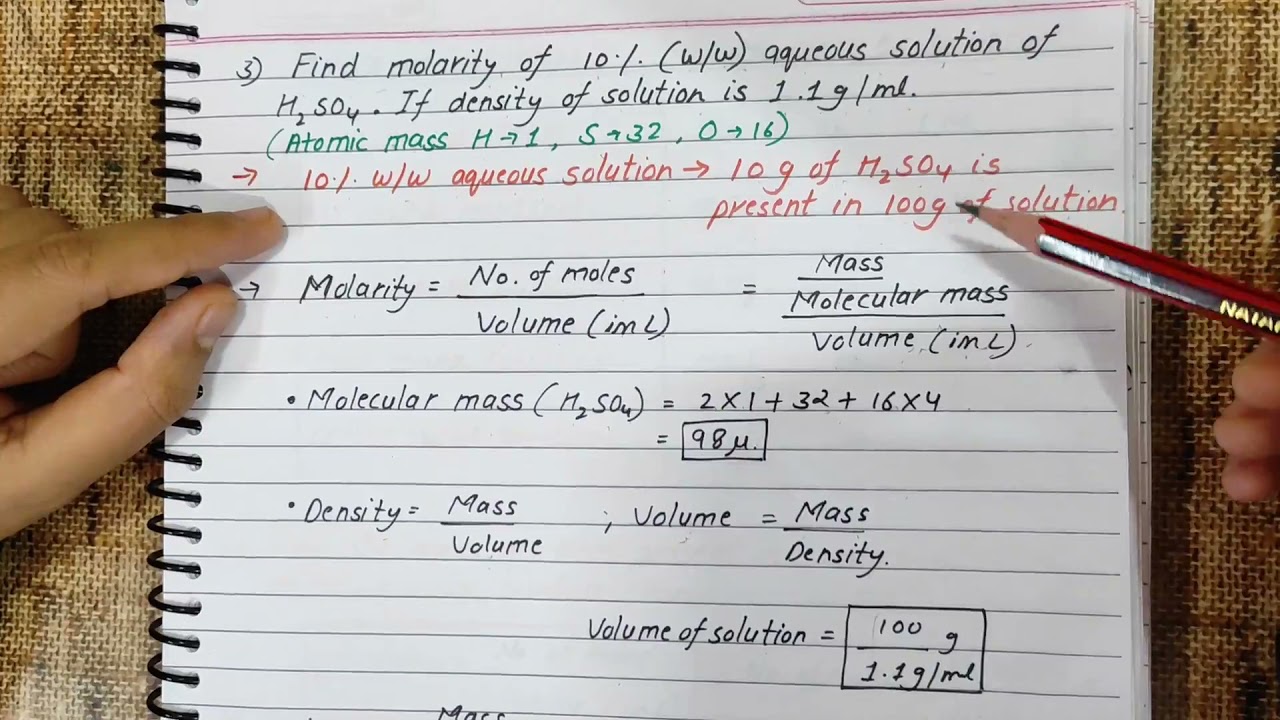 3) Find molarity of 10% (w/w) aqueous solution of
H₂SO₄. If density of solution is 1.1g/ml.
(Atomic mass H→1, S→32, O→16)
→ 10% w/w aqueous solution → 10g of H₂SO₄ is
present in 100g of solution.
→ Molarity = No. of moles / Volume (in L) = Mass / Molecular mass / Volume (in L).
• Molecular mass (H₂SO₄) = 2×1+32+16×4
= 98μ.
• Density = Mass / Volume ; Volume = Mass / Density.
Volume of solution = 100 g / 1.1g/ml
Mass
NATA